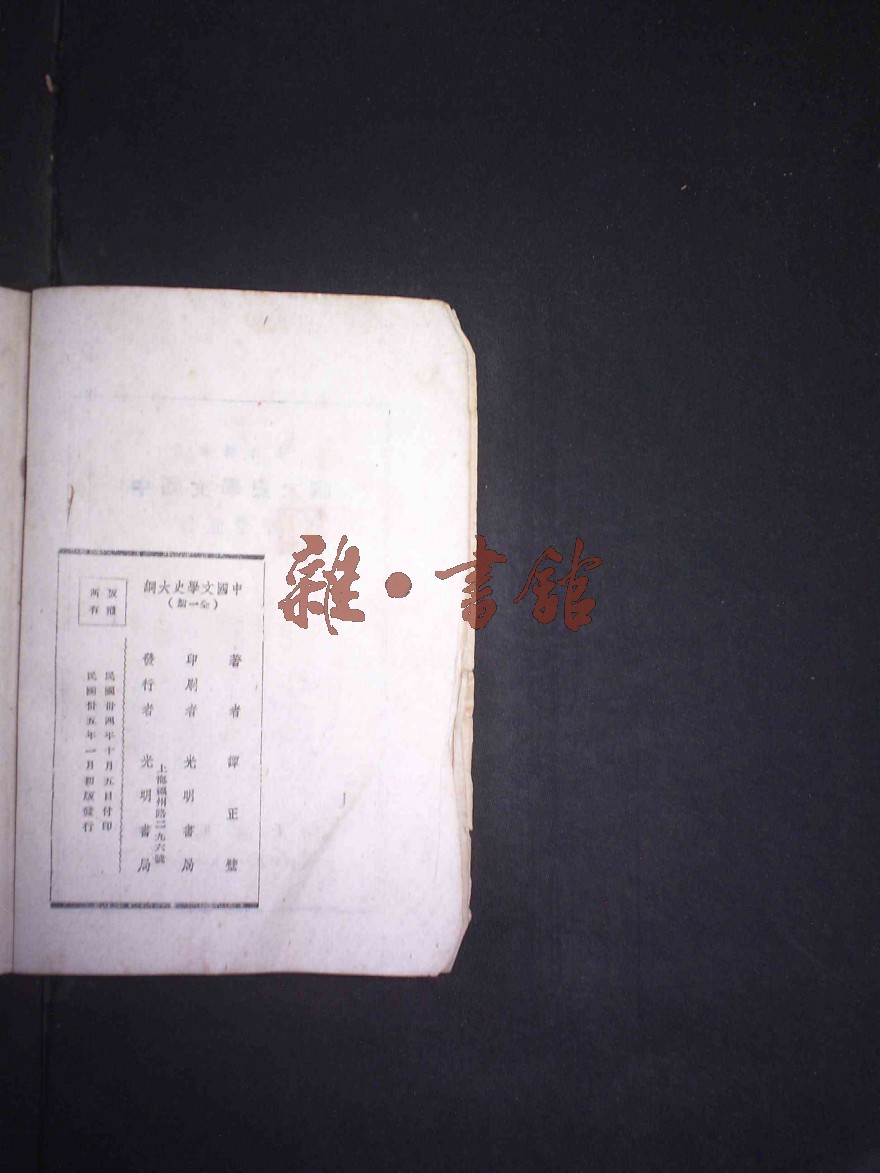 中國文學史大綱
(全一冊)
著者 譚正璧
印刷者 光明書局
上海福州路二九六號
發行者 光明書局
版權
所有
民國卅四年十月五日付印
民國卅五年一月初版發行
雜·書館